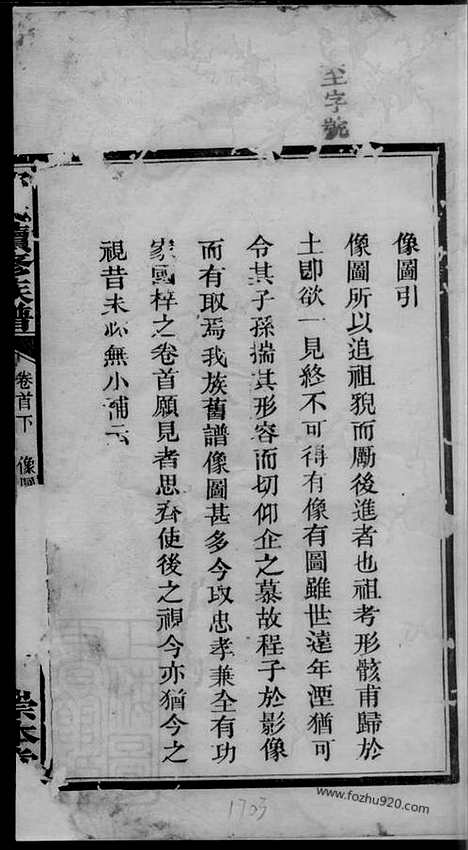 至字號
像圖引
像圖所以追祖貌而勵後進者也祖考形骸甫歸於
土即欲一見終不可得有像有圖雖世遠年湮猶可
令其子孫揣其形容而切仰企之慕故程子於影像
而有取焉我族舊譜像圖甚多今取忠孝兼全有功
家國梓之卷首願見者思齊使後之視今亦猶今之
視昔未必無小補云
續修族譜
卷首下
像圖
崇本
1703
www.fozhu920.com